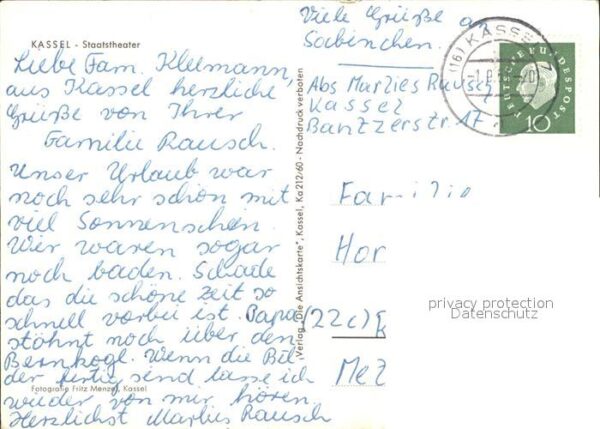 KASSEL - Staatstheater
Liebe Fam. Kleemann,
aus Kassel herzliche
Grüße von Ihrer
Familie Rausch.
Unser Urlaub war
noch sehr schön mit
viel Sonnenschein.
Wir waren sogar
noch baden. Schade
das die schöne Zeit so
schnell vorbei ist. Papa
stöhnt noch über den
Bernkogl. Wenn die Bil
der fertig sind lasse ich
wieder von mir hören.
Herzlichst Marlies Rausch
Fotografie Fritz Menzel, Kassel
Verlag „Die Ansichtskarte", Kassel, Ka 212/60 - Nachdruck verboten
Viele Grüße an
Sabinchen.
Abs Marlies Rausch
Kassel
Bantzerstr. 17
(16) KASSEL
DEUTSCHE BUNDESPOST
10
Familie
Hor
(22c)
Mez
privacy protection
Datenschutz